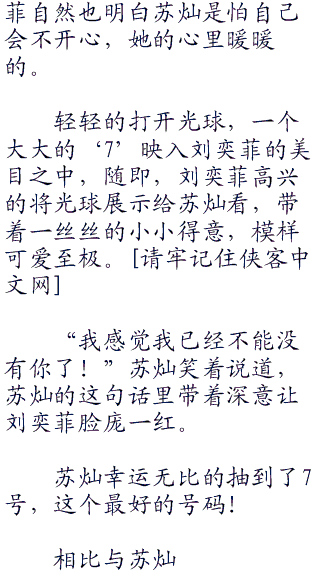 菲自然也明白苏灿是怕自己
会不开心，她的心里暖暖
的。
轻轻的打开光球，一个
大大的‘7’映入刘奕菲的美
目之中，随即，刘奕菲高兴
的将光球展示给苏灿看，带
着一丝丝的小小得意，模样
可爱至极。[请牢记住侠客中
文网]
“我感觉我已经不能没
有你了！”苏灿笑着说道，
苏灿的这句话里带着深意让
刘奕菲脸庞一红。
苏灿幸运无比的抽到了7
号，这个最好的号码！
相比与苏灿